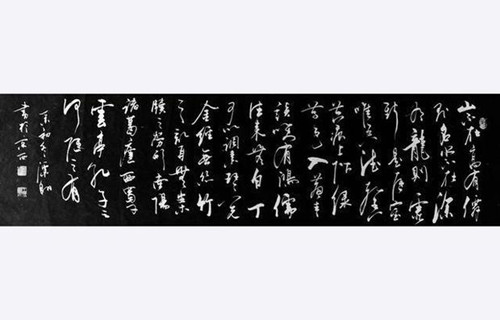 山不在高有僊
則名水不在深
有龍則靈
斯是陋室
惟吾德馨
苔痕上階綠
草色入簾青
談笑有鴻儒
往來無白丁
可以調素琴閱
金經無絲竹
之亂耳無案
牘之勞形南陽
諸葛廬西蜀子
雲亭孔子云
何陋之有